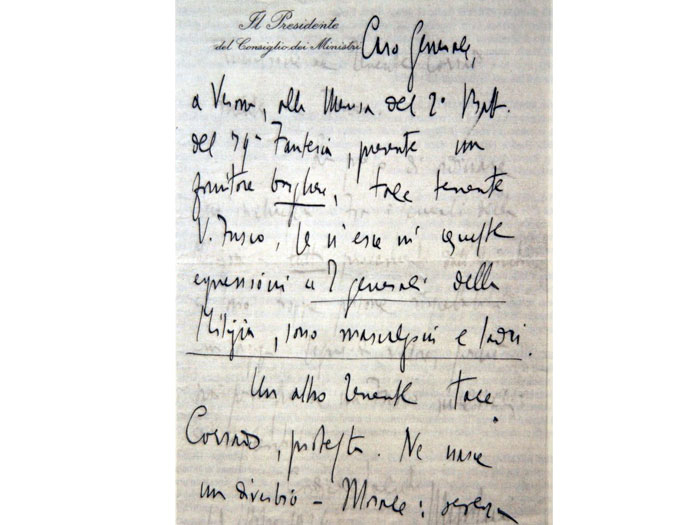 Il Presidente
del Consiglio dei Ministri
Caro Generale,
a Verona, alla Mensa del 2° Batt.
del 79° Fanteria, presente un
fornitore borghese, tale tenente
V. Fusco, se n'esce in queste
espressioni « I generali della
Milizia, sono mascalzoni e ladri.
Un altro Tenente tale
Corrado, protesta. Ne nasce
un diverbio – Morale: